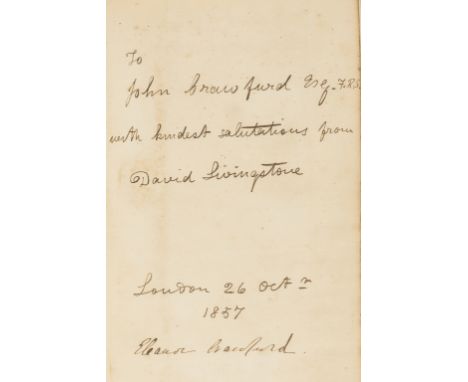 To
John Crawfurd Esq. F.R.S.
with kindest salutations from
David Livingstone
London 26 Octr
1857
Eleanor Crawfurd.